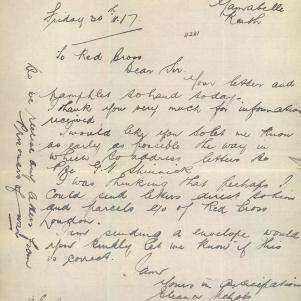 Friday 30th 11.17
To Red Cross
Dear Sir,
Your letter and
pamphlet to hand today.
I thank you very much for information
received.
I would like you to let me know
as early as possible the way in
which to address letters to
Pte. G.
I was thinking that perhaps I
could send letters direct to him
and parcels c/o of Red Cross
London.
I am sending a envelope would
you kindly let me know if this
is correct.
I am
Yours in anticipation
Eleanor
Do we receive any letters from
Prisoners of war